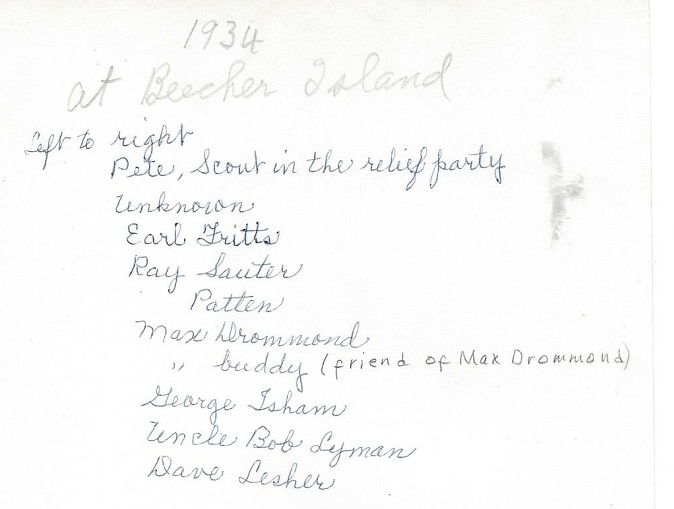 1934
at Beecher Island
Left to right
Pete, Scout in the relief party
Unknown
Earl Fritts
Ray Sauter
Patten
Max Drommond
" buddy (friend of Max Drommond)
George Isham
Uncle Bob Lyman
Dave Lesher